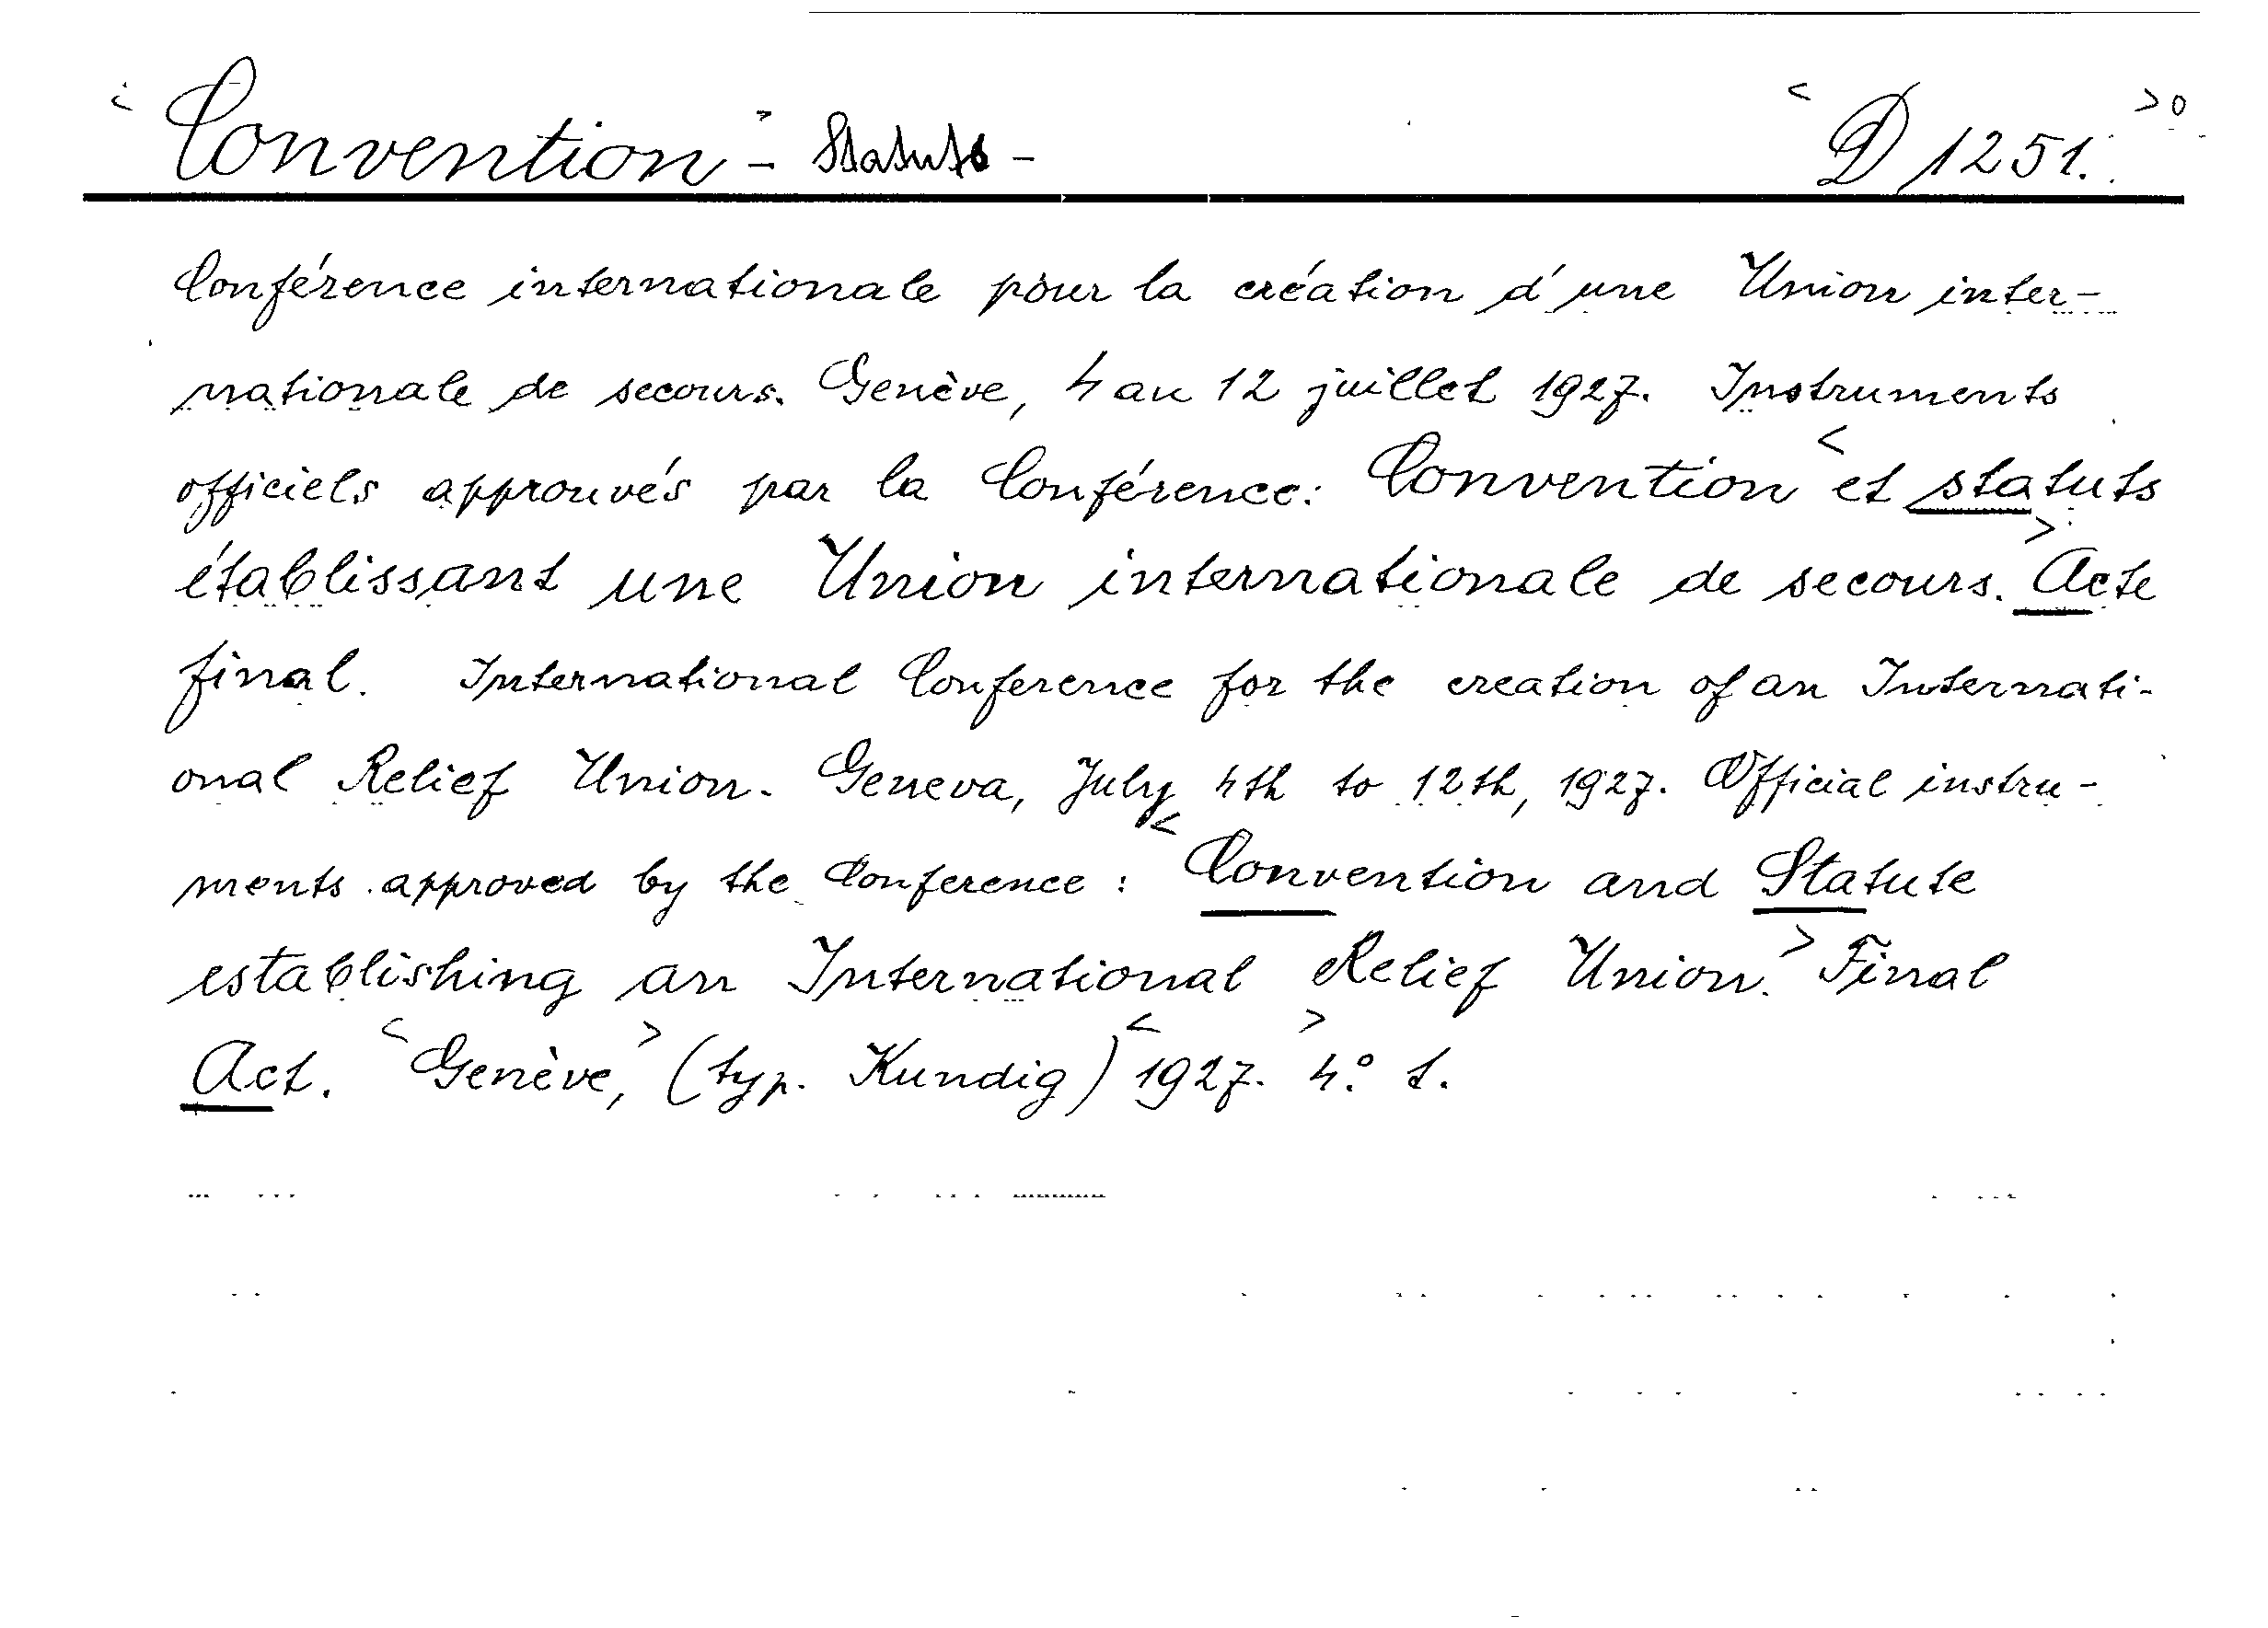 Convention - Statuts - D 1251.
Conférence internationale pour la création d'une Union inter-
nationale de secours. Genève, 4 au 12 juillet 1927. Instruments
officiels approuvés par la Conférence: Convention et statuts
établissant une Union internationale de secours. Acte
final. International Conference for the creation of an Internati-
onal Relief Union. Geneva, July 4th to 12th, 1927. Official instru-
ments approved by the Conference: Convention and Statute
establishing an International Relief Union. Final
Act. Genève, (typ. Kundig) 1927. 4.° t.